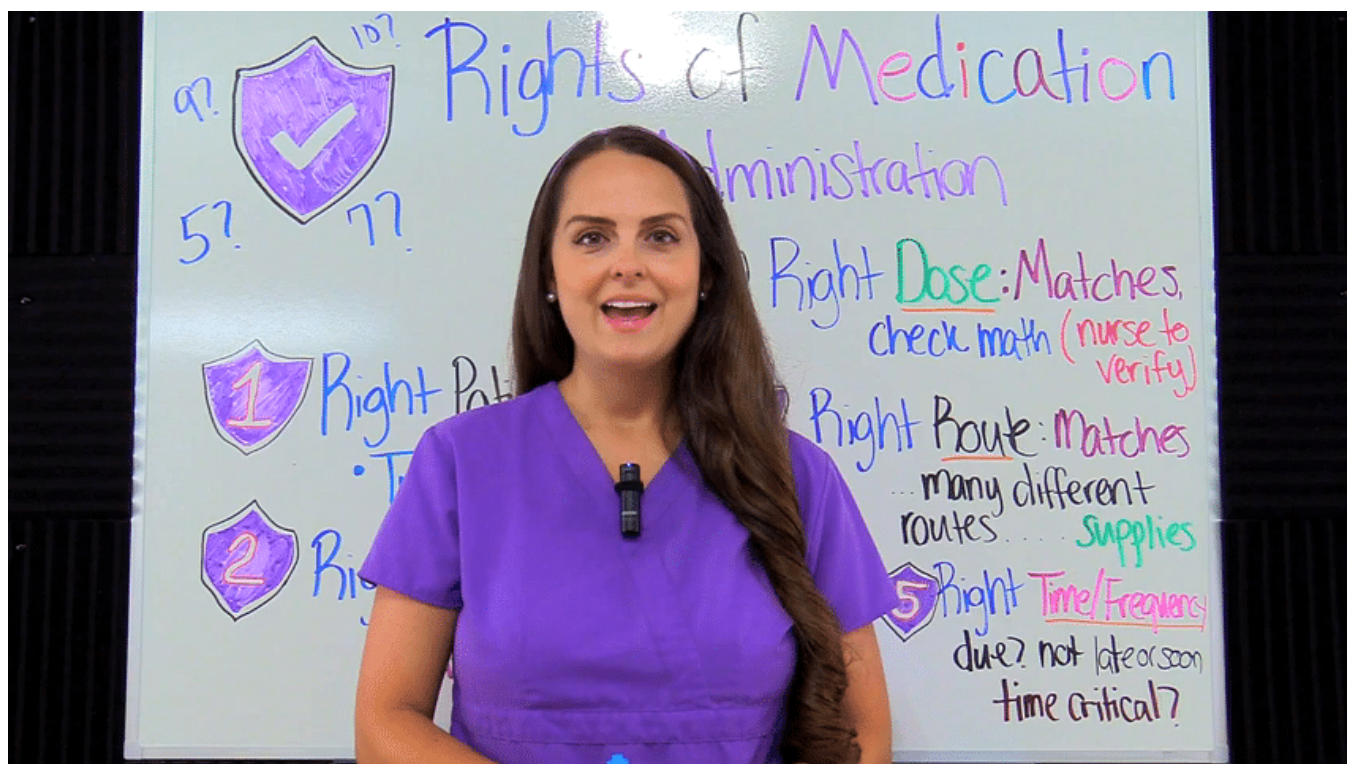 10?
9?
5?
7?
Rights of Medication
dministration
Right Dose: Matches,
check math (nurse to
verify)
1 Right
Right Route: Matches
... many different
routes..... supplies
2
5 Right Time/Frequency
due? not late or soon
time critical?